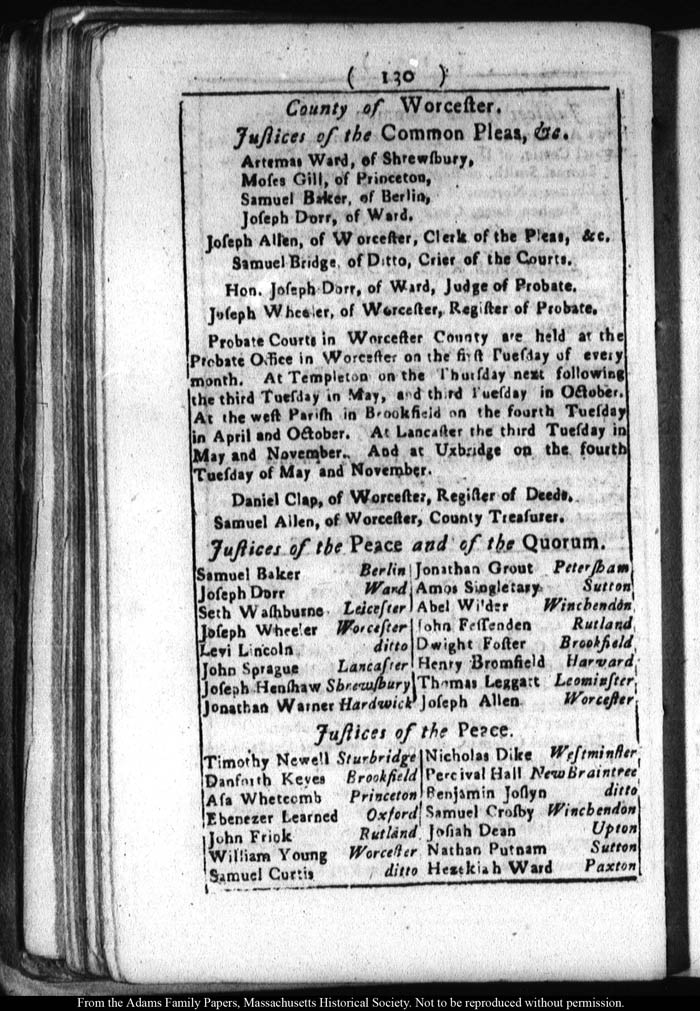 ( 130 )
County of Worceſter.
Juſtices of the Common Pleas, &c.
Artemas Ward, of Shrewſbury,
Moſes Gill, of Princeton,
Samuel Baker, of Berlin,
Joſeph Dorr, of Ward.
Joſeph Allen, of Worceſter, Clerk of the Pleas, &c.
Samuel Bridge, of Ditto, Crier of the Courts.
Hon. Joſeph Dorr, of Ward, Judge of Probate.
Joſeph Wheeler, of Worceſter, Regiſter of Probate.
Probate Courts in Worceſter County are held at the
Probate Office in Worceſter on the firſt Tueſday of every
month. At Templeton on the Thurſday next following
the third Tueſday in May, and third Tueſday in October.
At the weſt Pariſh in Brookfield on the fourth Tueſday
in April and October. At Lancaſter the third Tueſday in
May and November. And at Uxbridge on the fourth
Tueſday of May and November.
Daniel Clap, of Worceſter, Regiſter of Deeds.
Samuel Allen, of Worceſter, County Treaſurer.
Juſtices of the Peace and of the Quorum.
Samuel Baker Berlin Jonathan Grout Peterſham
Joſeph Dorr Ward Amos Singletary Sutton
Seth Waſhburne Leiceſter Abel Wilder Winchendon
Joſeph Wheeler Worceſter John Feſſenden Rutland
Levi Lincoln ditto Dwight Foſter Brookfield
John Sprague Lancaſter Henry Bromfield Harvard
Joſeph Henſhaw Shrewſbury Thomas Leggatt Leominſter
Jonathan Warner Hardwick Joſeph Allen Worceſter
Juſtices of the Peace.
Timothy Newell Sturbridge Nicholas Dike Weſtminſter
Danforth Keyes Brookfield Percival Hall New Braintree
Aſa Whetcomb Princeton Benjamin Joſlyn ditto
Ebenezer Learned Oxford Samuel Croſby Winchendon
John Frink Rutland Joſiah Dean Upton
William Young Worceſter Nathan Putnam Sutton
Samuel Curtis ditto Hezekiah Ward Paxton
From the Adams Family Papers, Massachusetts Historical Society. Not to be reproduced without permission.